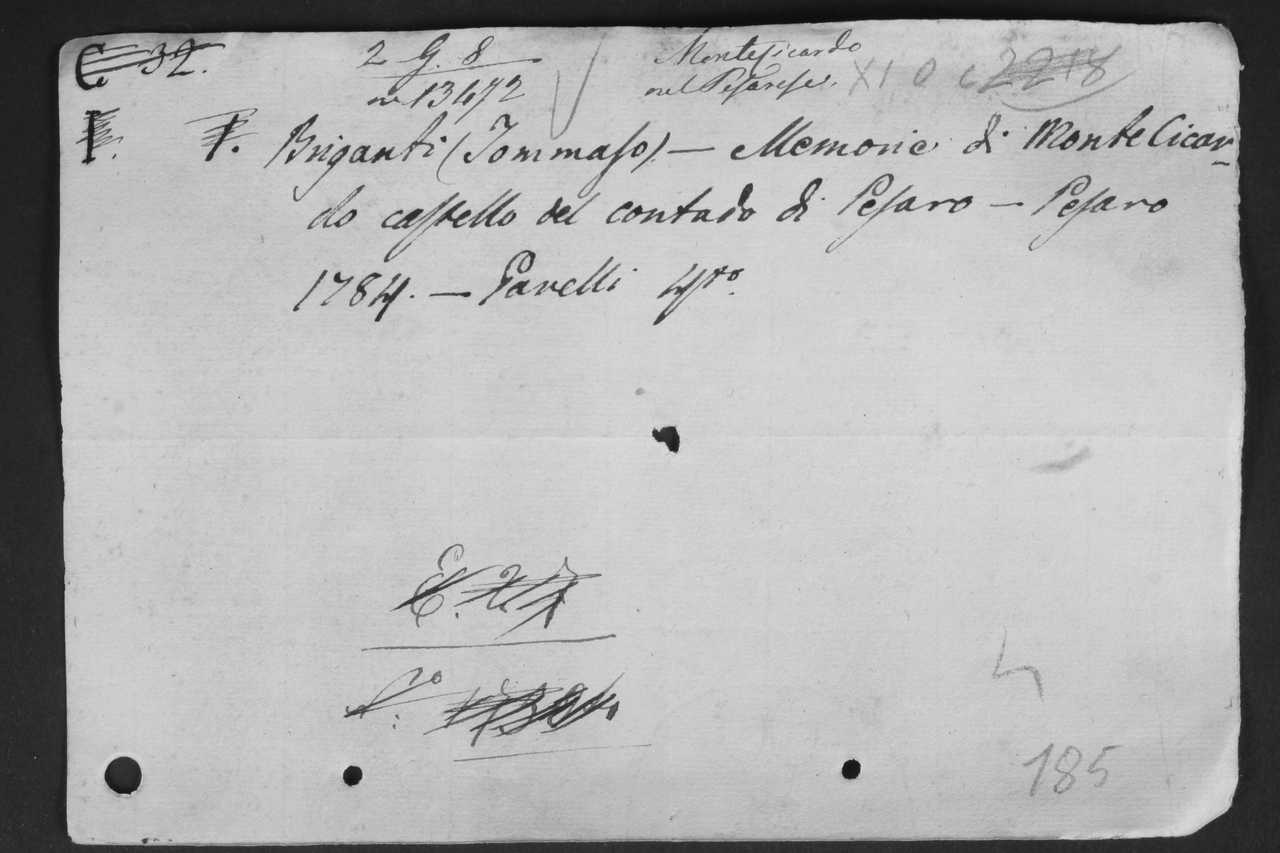 C. 32.
2 G. 8
nº 13472
Monteficardo
nel Pesarese.
XI 0 c 2218
I. I. Briganti (Tommaso) — Memorie di MonteCicar-
do castello del contado di Pesaro — Pesaro
1784. — Gavelli 4to.
E. 2.
Nº.
185